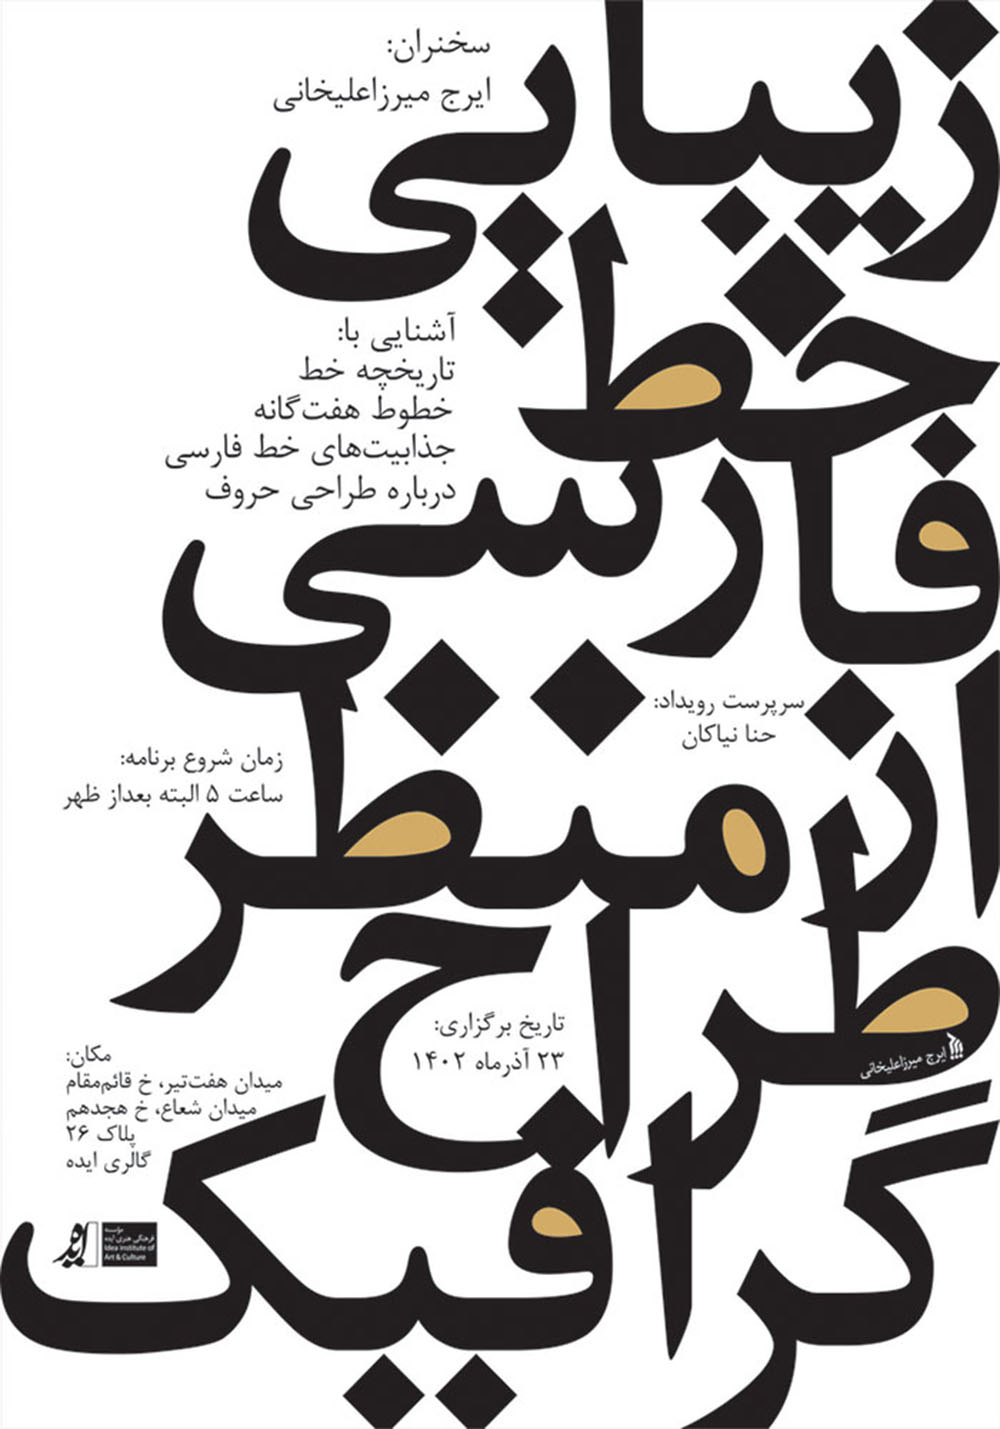 زیبایی
خط
فارسی
از منظر
طراح
گرافیک
سخنران:
ایرج میرزاعلیخانی
آشنایی با:
تاریخچه خط
خطوط هفت‌گانه
جذابیت‌های خط فارسی
درباره طراحی حروف
سرپرست رویداد:
حنا نیاکان
زمان شروع برنامه:
ساعت ۵ البته بعداز ظهر
تاریخ برگزاری:
۲۳ آذرماه ۱۴۰۲
ایرج میرزاعلیخانی
مکان:
میدان هفت‌تیر، خ قائم‌مقام
میدان شعاع، خ هجدهم
پلاک ۲۶
گالری ایده
ایده
مؤسسه
فرهنگی هنری ایده
Idea Institute of
Art & Culture